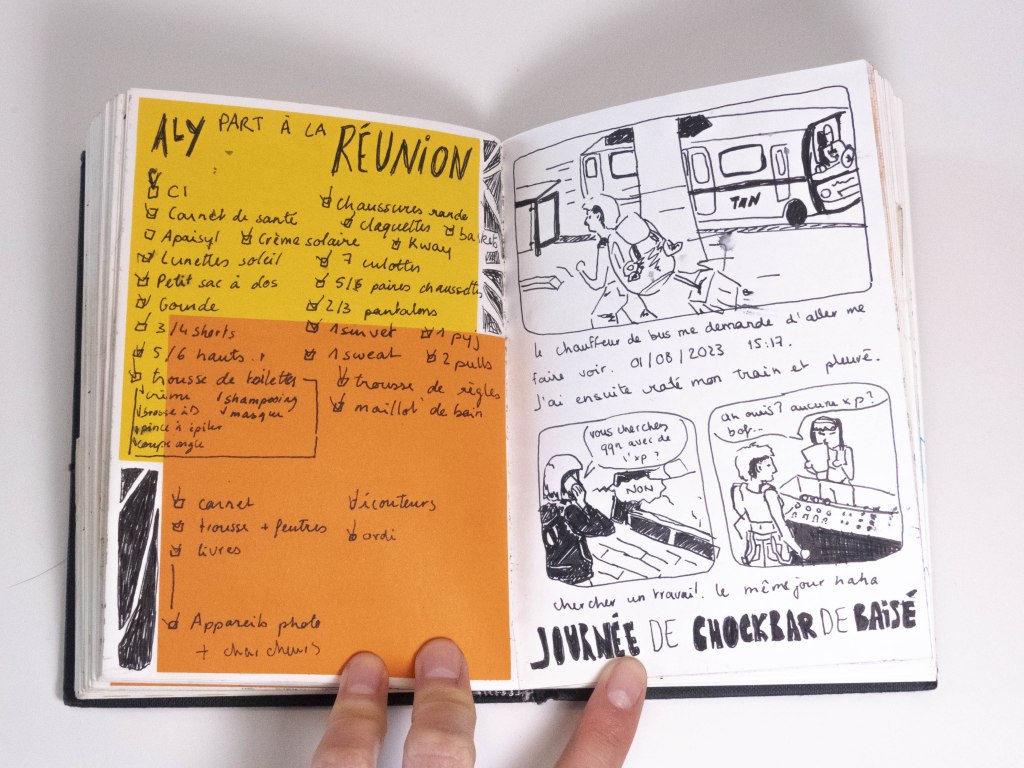 ALY PART À LA RÉUNION
CI
Carnet de santé
Apaisyl
Crème solaire
Lunettes soleil
Petit sac à dos
Gourde
3/4 shorts
5/6 hauts
trousse de toilettes
crème
shampooing
brosse à D
masque
pince à épiler
coupe ongle
chaussures rando
claquettes
baskets
Kway
7 culottes
5/6 paires chaussettes
2/3 pantalons
1 survet
1 pyj
1 sweat
2 pulls
trousse de règles
maillot de bain
carnet
écouteurs
trousse + feutres
ordi
livres
Appareils photo
+ chargeurs
TAN
le chauffeur de bus me demande d'aller me
faire voir. 01/08/2023 15:17.
J'ai ensuite raté mon train et pleuré.
vous cherchez
qqn avec de
l'xp?
NON
ah ouis? aucune xp?
bof...
chercher un travail. le même jour haha
JOURNÉE DE CHOCKBAR DE BAISÉ